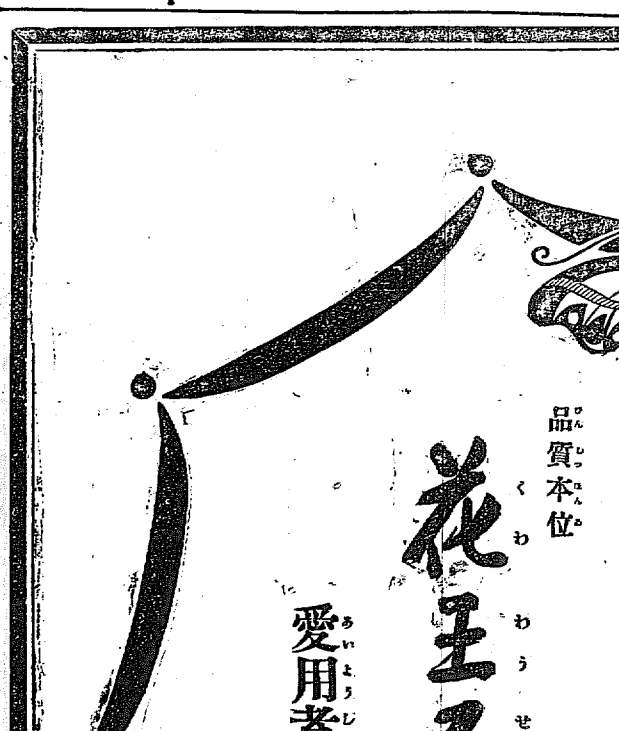 品質本位
花王
愛用者